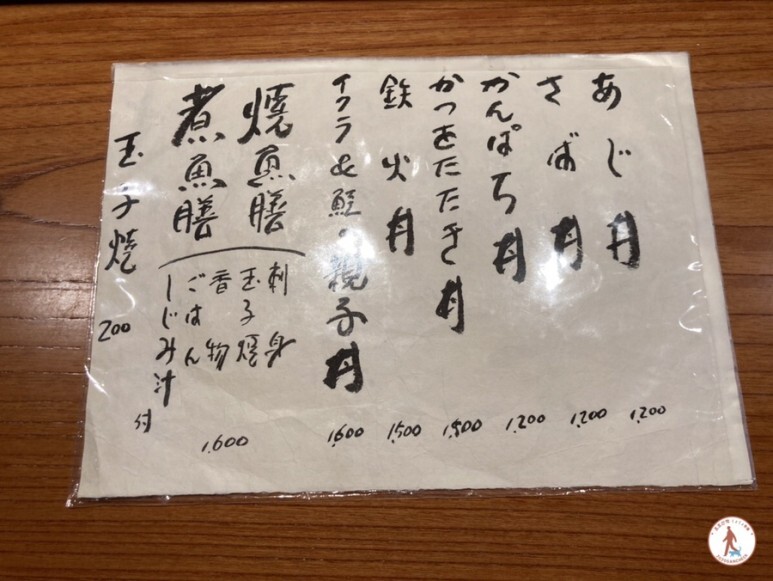 あじ丼 1,200
さば丼 1,200
かんぱち丼 1,200
かつをたたき丼 1,500
鉄火丼 1,500
イクラ&鮭の親子丼 1,600
焼魚膳
煮魚膳
刺身
玉子焼
香物
ごはん
しじみ汁付
1,600
玉子焼 200